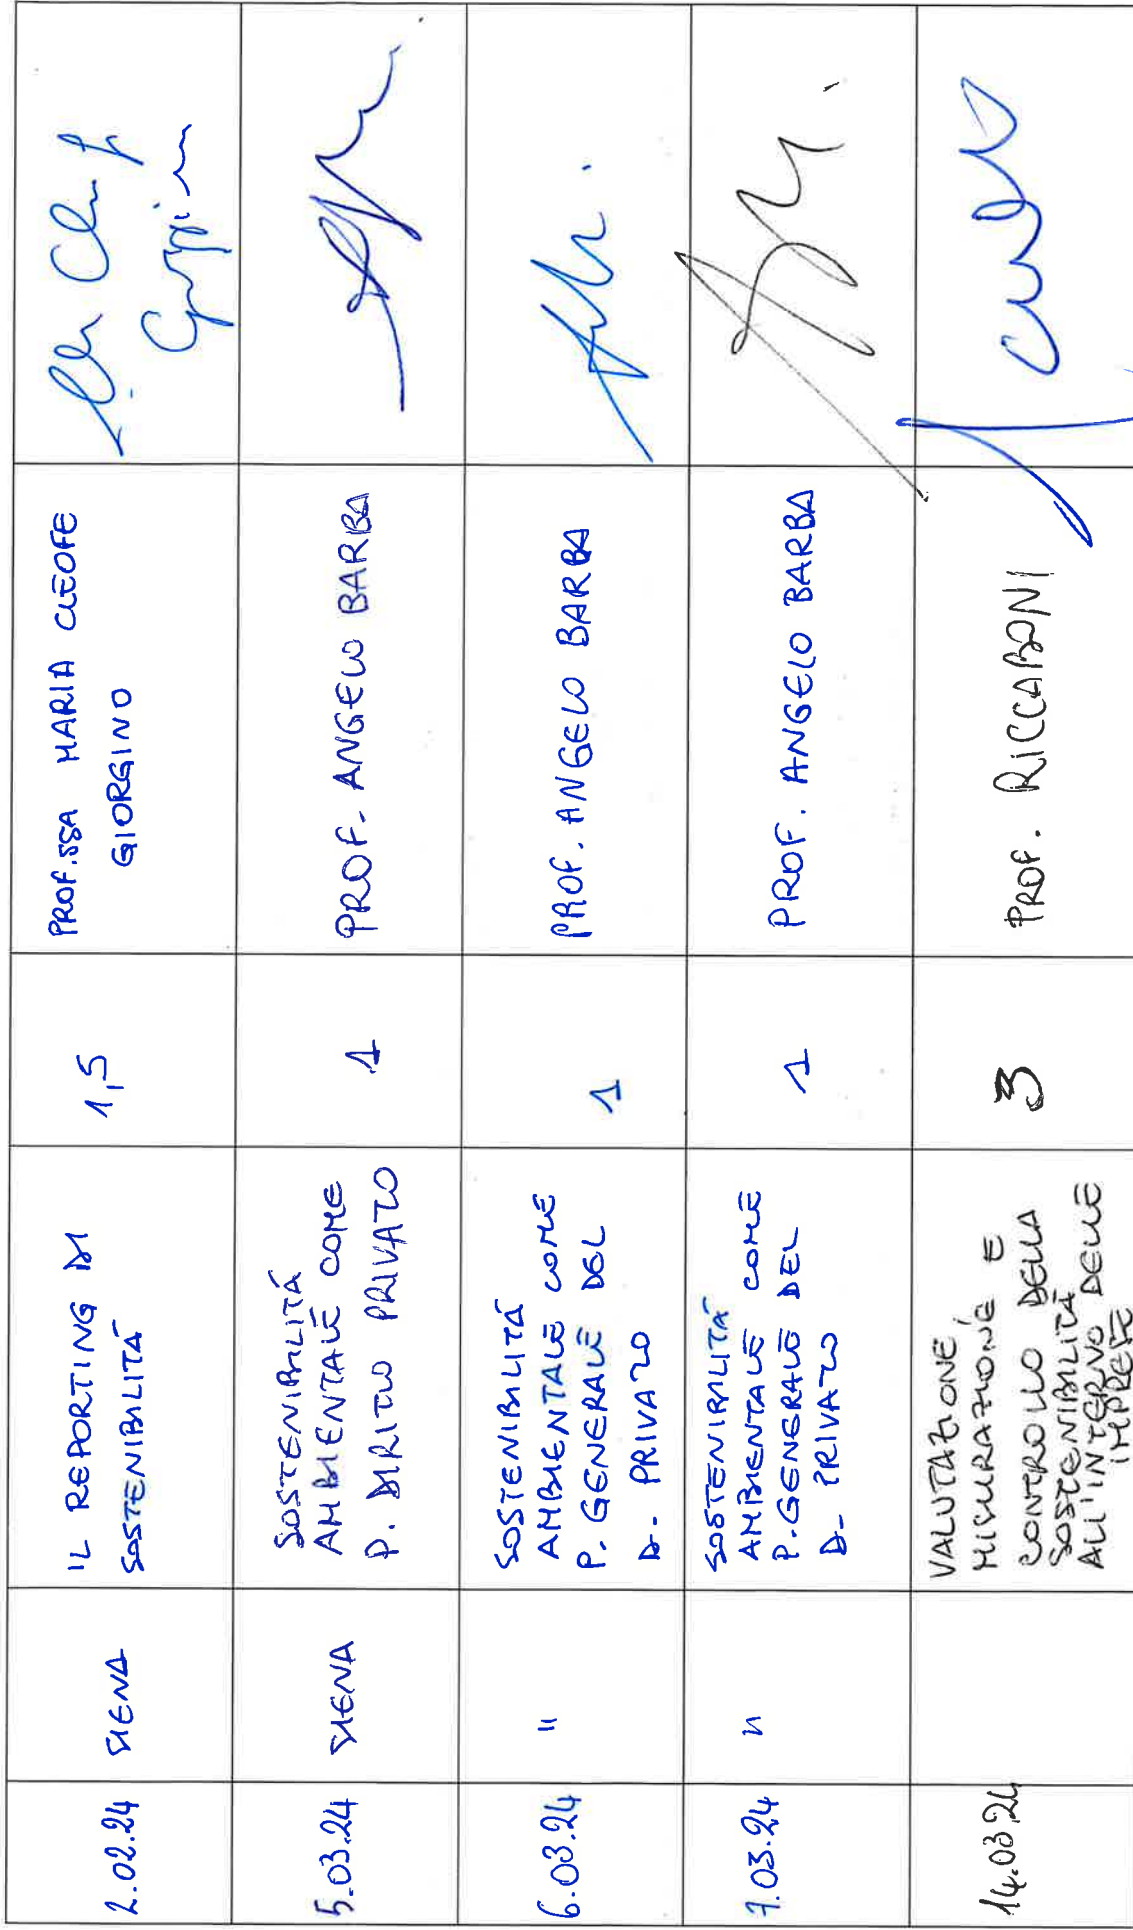 2.02.24
SIENA
IL REPORTING DI
SOSTENIBILITÁ
1,5
PROF.SSA MARIA CLEOFE
GIORGINO
5.03.24
SIENA
SOSTENIBILITÁ
AMBIENTALE COME
P. DIRITTO PRIVATO
1
PROF. ANGELO BARBA
6.03.24
"
SOSTENIBILITÁ
AMBIENTALE COME
P. GENERALE DEL
D. PRIVATO
1
PROF. ANGELO BARBA
7.03.24
"
SOSTENIBILITÁ
AMBIENTALE COME
P. GENERALE DEL
D. PRIVATO
1
PROF. ANGELO BARBA
14.03.24
VALUTAZIONE,
MISURAZIONE E
CONTROLLO DELLA
SOSTENIBILITÁ
ALL'INTERNO DELLE
IMPRESE
3
PROF. RICCABONI